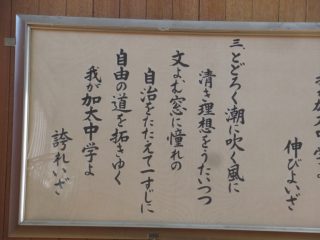 伸びよいざ
三、とどろく潮に吹く風に
清き理想をうたいつつ
文よむ窓に憧れの
自治をたたえて一すじに
自由の道を拓きゆく
我が加太中学よ
誇れいざ